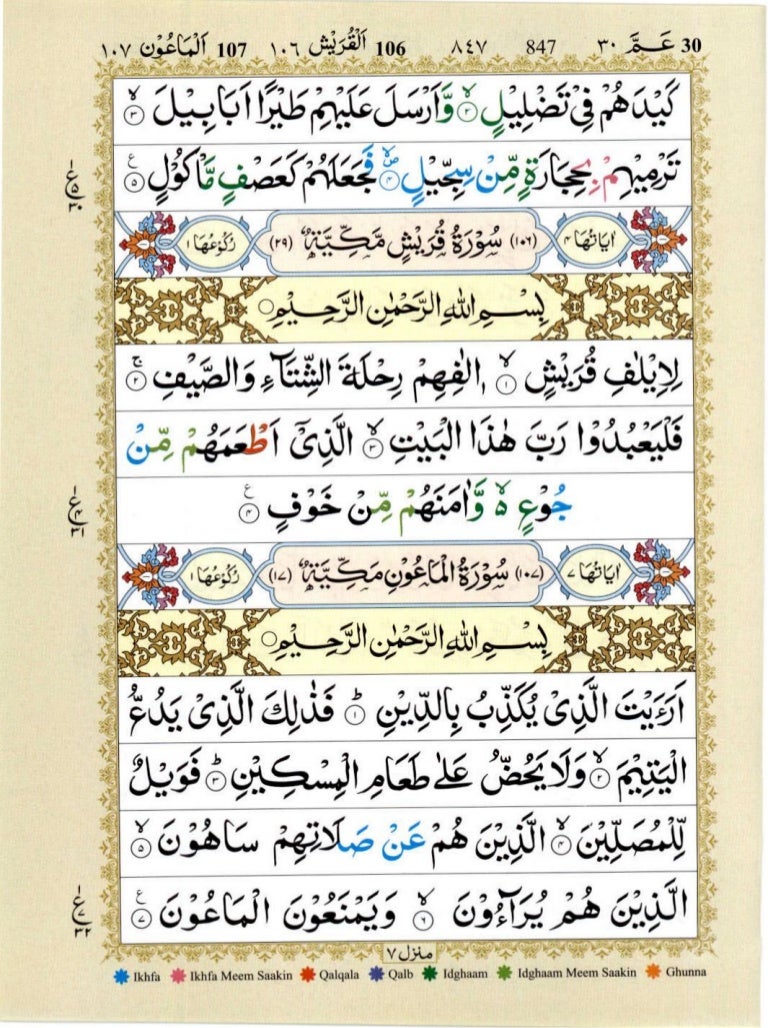 30 عَمَّ ٣٠ 847 ٨٤٧ 106 اَلْقُرَيْش ١٠٦ 107 اَلْمَاعُوْن ١٠٧
كَيْدَهُمْ فِيْ تَضْلِيْلٍ ۙ‏﴿۲﴾ وَّاَرْسَلَ عَلَيْهِمْ طَيْرًا اَبَابِيْلَ ۙ‏﴿۳﴾
تَرْمِيْهِمْ بِحِجَارَةٍ مِّنْ سِجِّيْلٍ ۙ‏﴿۴﴾ فَجَعَلَهُمْ كَعَصْفٍ مَّاْكُوْلٍ ﴿۵﴾
اٰيَاتُهَا ٤ (١٠٦) سُوْرَةُ قُرَيْشٍ مَّكِّيَّةٌ (٢٩) رُكُوْعُهَا ١
بِسْمِ اللّٰهِ الرَّحْمٰنِ الرَّحِيْمِ
لِاِيْلٰفِ قُرَيْشٍ ۙ‏﴿۱﴾ اٖلٰفِهِمْ رِحْلَةَ الشِّتَآءِ وَالصَّيْفِ ۚ‏﴿۲﴾
فَلْيَعْبُدُوْا رَبَّ هٰذَا الْبَيْتِ ۙ‏﴿۳﴾ الَّذِيْٓ اَطْعَمَهُمْ مِّنْ
جُوْعٍ ۙ وَّاٰمَنَهُمْ مِّنْ خَوْفٍ ﴿۴﴾
اٰيَاتُهَا ٧ (١٠٧) سُوْرَةُ الْمَاعُوْنِ مَكِّيَّةٌ (١٧) رُكُوْعُهَا ١
بِسْمِ اللّٰهِ الرَّحْمٰنِ الرَّحِيْمِ
اَرَءَيْتَ الَّذِيْ يُكَذِّبُ بِالدِّيْنِ ؕ‏﴿۱﴾ فَذٰلِكَ الَّذِيْ يَدُعُّ
الْيَتِيْمَ ۙ‏﴿۲﴾ وَلَا يَحُضُّ عَلٰى طَعَامِ الْمِسْكِيْنِ ؕ‏﴿۳﴾ فَوَيْلٌ
لِّلْمُصَلِّيْنَ ۙ‏﴿۴﴾ الَّذِيْنَ هُمْ عَنْ صَلَاتِهِمْ سَاهُوْنَ ۙ‏﴿۵﴾
الَّذِيْنَ هُمْ يُرَآءُوْنَ ۙ‏﴿۶﴾ وَيَمْنَعُوْنَ الْمَاعُوْنَ ﴿۷﴾
منزل ٧
Ikhfa Ikhfa Meem Saakin Qalqala Qalb Idghaam Idghaam Meem Saakin Ghunna